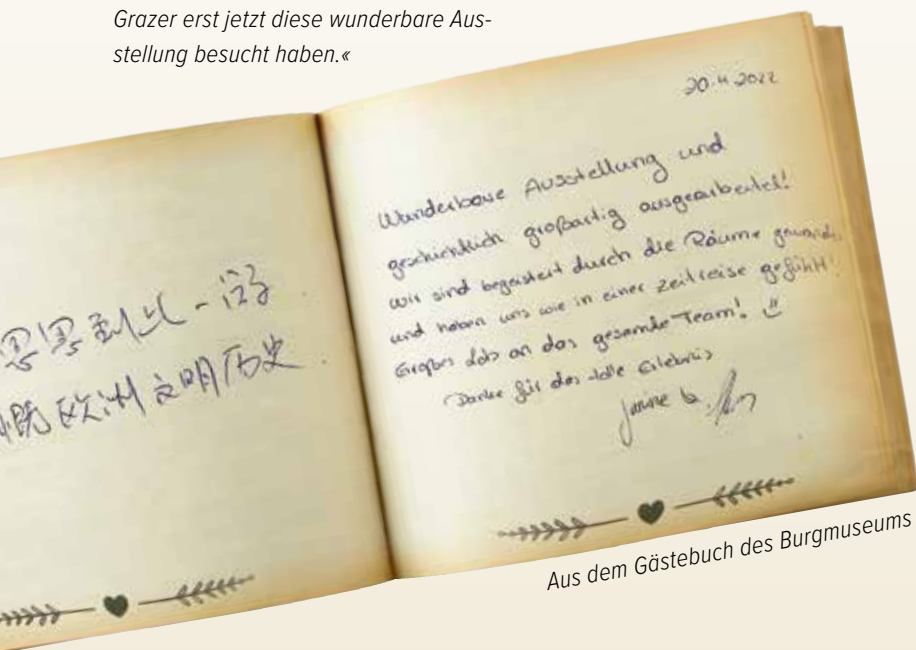 Grazer erst jetzt diese wunderbare Aus-
stellung besucht haben.«
思思到此一游
慨欧洲文明历史.
20.11.2022
Wunderbare Ausstellung und
geschichtlich großartig ausgearbeitet!
wir sind begeistert durch die Räume
und haben uns wie in einer Zeitreise gefühlt!
Großes Lob an das gesamte Team!
Danke für das tolle Erlebnis
Aus dem Gästebuch des Burgmuseums